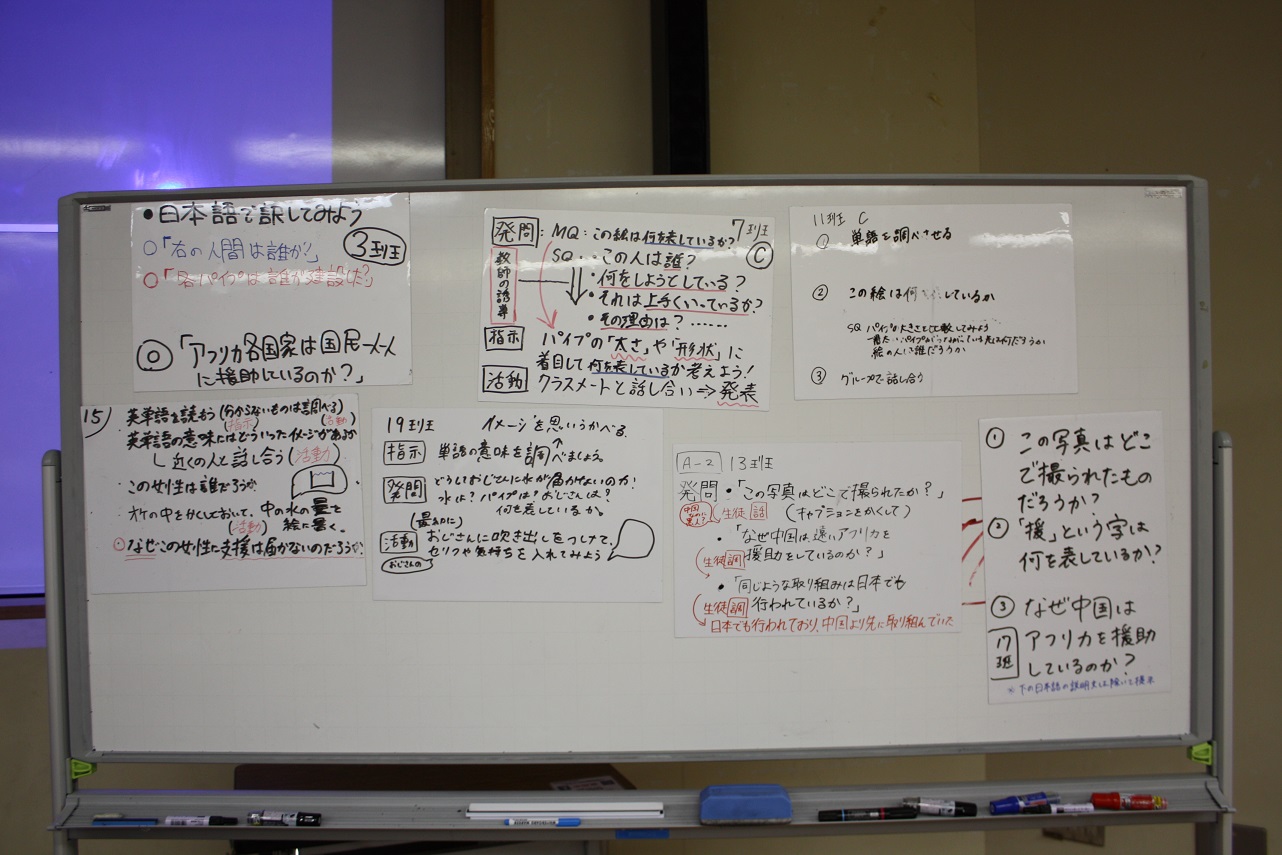 ●日本語で訳してみよう
○「右の人間は誰か？」
3班
○「各パイプは誰が建設した？」
◎「アフリカ各国家は国民一人一人
に援助しているのか？」
7班
発問：MQ：この絵は何を表しているか？
Ⓒ
教師の誘導
SQ：・この人は誰？
・何をしようとしている？
・それは上手くいっているか？
・その理由は？……
指示
パイプの「太さ」や「形状」に
着目して何を表しているか考えよう！
活動
クラスメートと話し合い⇒発表
11班 C
① 単語を調べさせる
② この絵は何を表しているか
SQ パイプの大きさを比較してみよう
絵の人は誰だろうか
③ グループで話し合う
15)
英単語を読もう(分からないものは調べる)
(指示) (活動)
英単語の意味にはどういったイメージがあるか
近くの人と話し合う(活動)
この女性は誰だろうか
オケの中をかくしておいて、中の水の量を
(活動) 絵に書く。
○なぜこの女性に支援は届かないのだろうか？
19班 イメージを思いうかべる。
指示 単語の意味を調べましょう。
発問 どうしておじさんに水が届かないのか？
水は？パイプは？おじさんは？
何を表しているか。
(最初に)
活動 おじさんに吹き出しをつけて、
おじさんの
セリフや気持ちを入れてみよう
A-2 13班
発問・「この写真はどこで撮られたか？」
中国なのに黒人？
生徒 話 (キャプションをかくして)
・「なぜ中国は、遠いアフリカを
援助をしているのか？」
生徒 調
・「同じような取り組みは日本でも
行われているか？」
生徒 調
日本でも行われており、中国より先に取り組んでいた
① この写真はどこ
で撮られたもの
だろうか？
② 「援」という字は
何を表しているか？
③ なぜ中国は
アフリカを援助
しているのか？
17班
※下の日本語の説明文は除いて提示